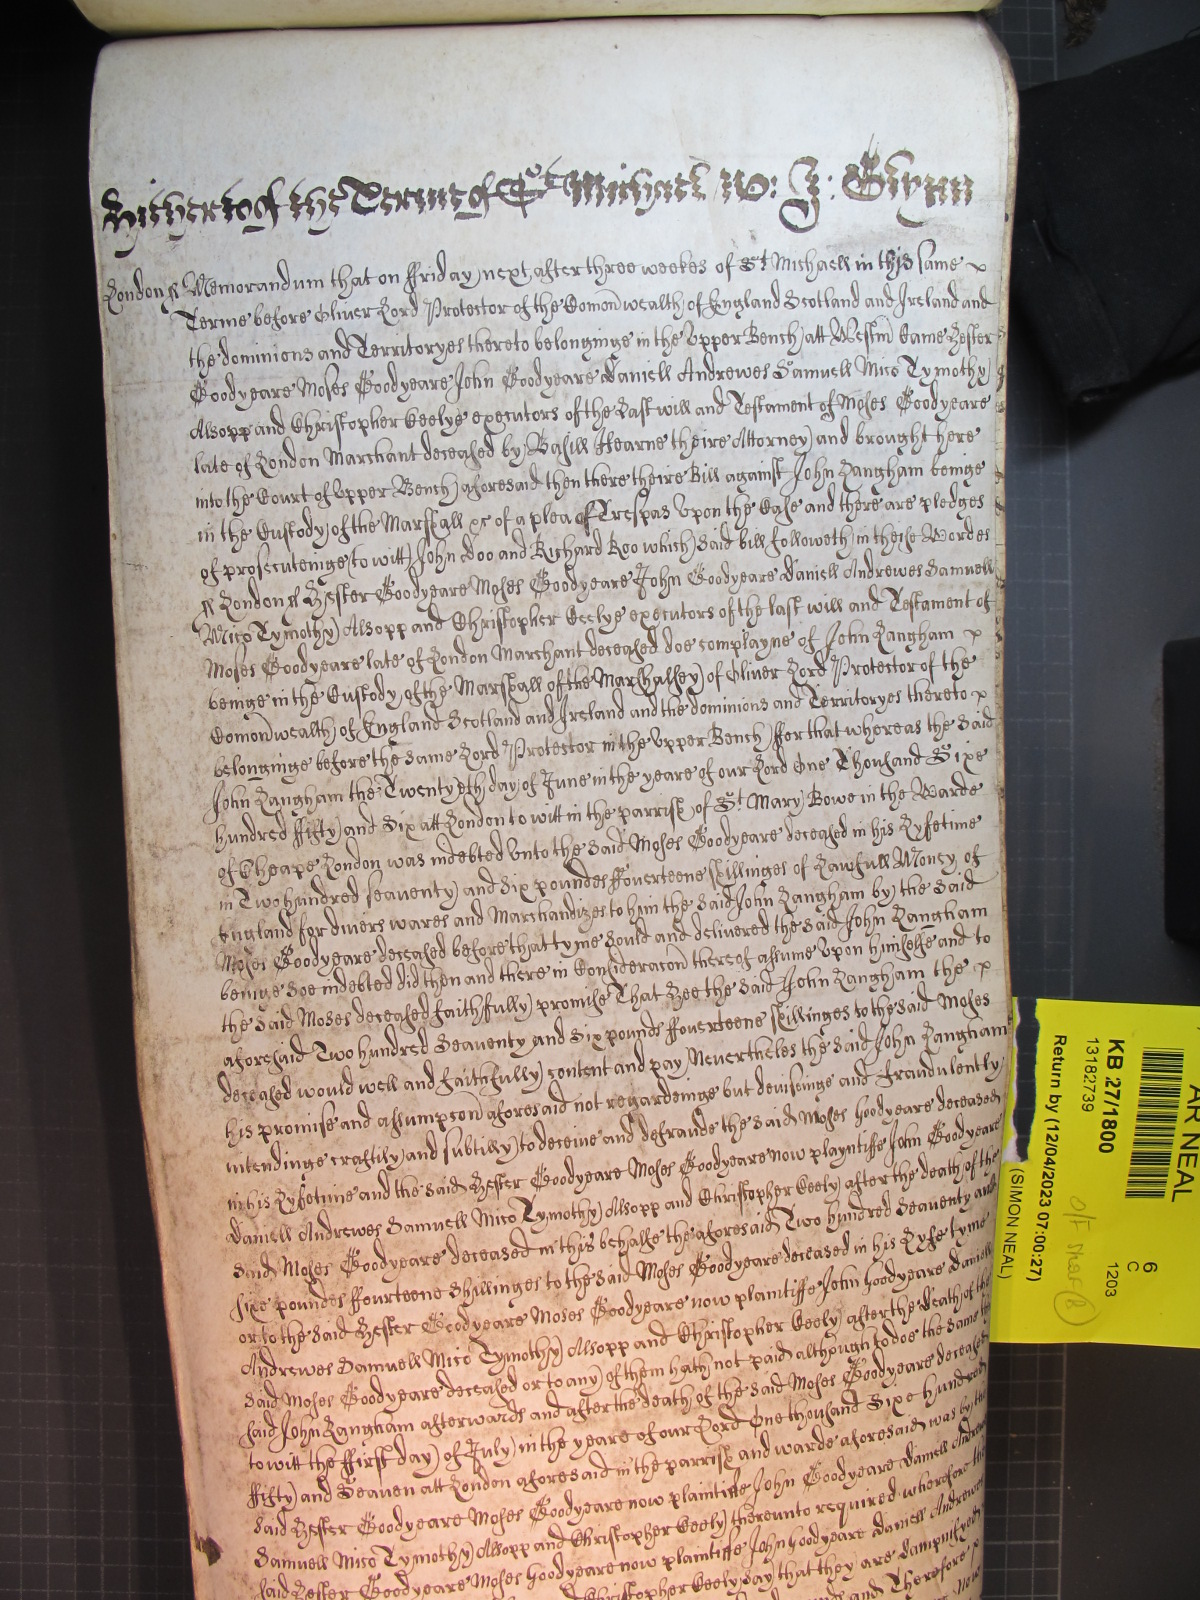 Hitherto of the Terme of St Michaell 1657: J: Glynn
London ss Memorandum that on ffriday next after three weekes of St Michaell in this same
Terme before Oliver Lord Protector of the Comonwealth of England Scotland and Ireland and
the dominions and Territoryes thereto belonginge in the Upper Bench att Westm Came Hester
Goodyeare Moses Goodyeare John Goodyeare Daniell Andrewes Samuell Mico Tymothy
Alsopp and Christopher Eeelye executors of the Last will and Testament of Moses Goodyeare
late of London Marchant deceased by Basill Hearne theire Attorney and brought here
into the Court of Upper Bench aforesaid then there theire Bill against John Langham beinge
in the Custody of the Marshall &c of a plea of Trespas Upon the Case and there are pledges
of prosecuteinge (to witt) John Doo and Richard Roo which said bill followeth in theise Wordes
ss London ss Hester Goodyeare Moses Goodyeare John Goodyeare Daniell Andrewes Samuell
Mico Tymothy Alsopp and Christopher Ceelye executors of the last will and Testament of
Moses Goodyeare late of London Marchant deceased doe complayne of John Langham
beinge in the Custody of the Marshall of the Marshalsey of Oliver Lord Protector of the
Comonwealth of England Scotland and Ireland and the dominions and Territoryes thereto
belonginge before the same Lord Protector in the Upper Bench ffor that whereas the said
John Langham the Twentyeth day of June in the yeare of our Lord One Thousand Sixe
hundred ffifty and Six att London to witt in the parrish of St Mary Bowe in the Warde
of Cheape London was indebted Unto the said Moses Goodyeare deceased in his Lyfetime
in Two hundred seaventy and Six poundes ffourteene shillinges of Lawfull Money of
England for divers wares and Marchandizes to him the said John Langham by the said
Moses Goodyeare deceased before that tyme Sould and delivered the said John Langham
beinge Soe indebted did then and there in Consideracon thereof assume Upon himselfe and to
the said Moses deceased faithfully promise That Hee the said John Langham the
aforesaid Two hundred Seaventy and Six pounds ffourteene shillinges to the said Moses
deceased would well and faithfully content and pay Nevertheles the said John Langham
his promise and assumpcon aforesaid not regardeinge but deviseinge and fraudulently
intendinge craftily and subtilly to deceive and defraude the said Moses Goodyeare deceased
in his Lyfetime and the said Hester Goodyeare Moses Goodyeare now playntiffe John Goodyeare
Daniell Andrewes Samuell Mico Tymothy Alsopp and Christopher Ceely after the death of the
said Moses Goodyeare deceased in this behalfe the aforesaid Two hundred Seaventy and
sixe poundes ffourteene Shillinges to the said Moses Goodyeare deceased in his Lyfe tyme
or to the said Hester Goodyeare Moses Goodyeare now plaintiffe John Goodyeare Daniell
Andrewes Samuell Mico Tymothy Alsopp and Christopher Ceely after the death of the
said Moses Goodyeare deceased or to any of them hath not paid although to doe the same the
said John Langham afterwards and after the death of the said Moses Goodyeare deceased
to witt the ffirst day of July in the yeare of our Lord One thousand Sixe hundred
ffifty and Seaven att London aforesaid in the parrish and warde aforesaid was by the
said Hester Goodyeare Moses Goodyeare now plaintiffe John Goodyeare Daniell Andrewes
Samuell Mico Tymothy Alsopp and Christopher Ceely thereunto required wherefore the
said Hester Goodyeare Moses Goodyeare now plaintiffe John Goodyeare Daniell Andrewes
Christopher Ceely say that they are dampnifyed
and Therefore
AR NEAL
KB 27/1800
13182739
Return by (12/04/2023 07:00:27)
(SIMON NEAL)
6
C
1203